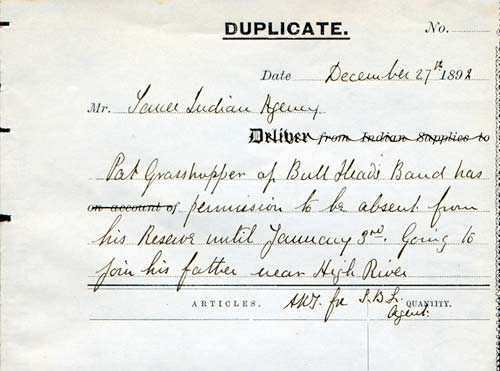 DUPLICATE. No.
Date December 27th 1892
Mr. Sarcee Indian Agency
Deliver from Indian Supplies to
Pat Grasshopper of Bull Head's Band has
on account of permission to be absent from
his Reserve until January 3rd. Going to
join his father near High River
ARTICLES. for S.B.L. QUANTITY.
Agent.